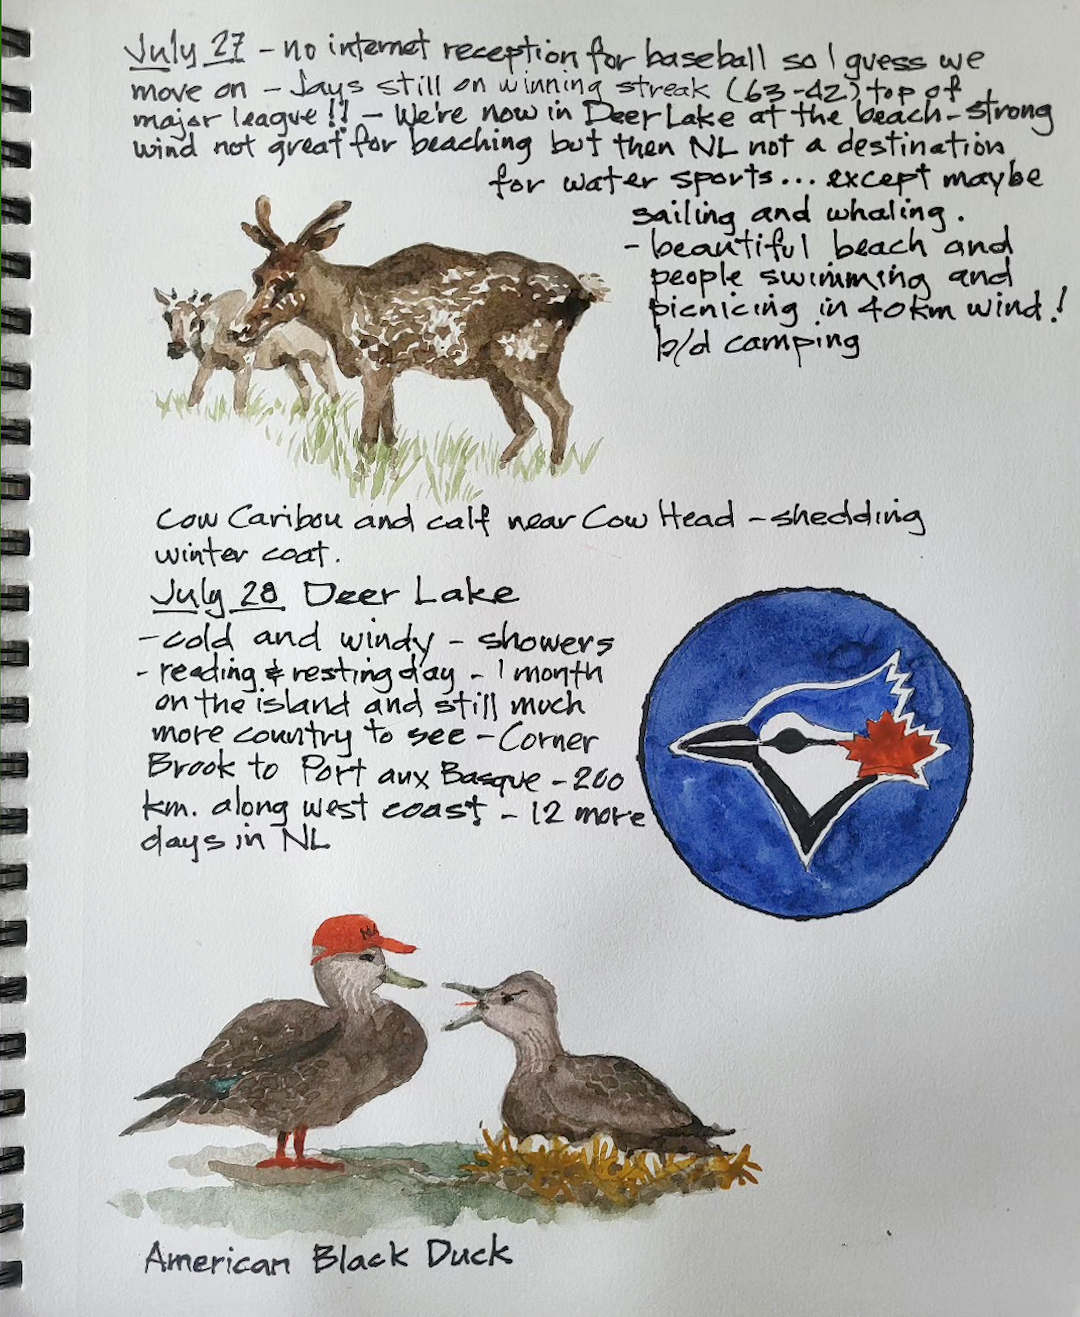 July 27 - no internet reception for baseball so I guess we
move on - Jays still on winning streak (63-42) top of
major league!! - We're now in Deer Lake at the beach - strong
wind not great for beaching but then NL not a destination
for water sports... except maybe
sailing and whaling.
- beautiful beach and
people swimming and
picnicing in 40km wind!
b/d camping
Cow Caribou and calf near Cow Head - shedding
winter coat.
July 28 Deer Lake
- cold and windy - showers
- reading & resting day - 1 month
on the island and still much
more country to see - Corner
Brook to Port aux Basque - 200
km. along west coast - 12 more
days in NL
American Black Duck